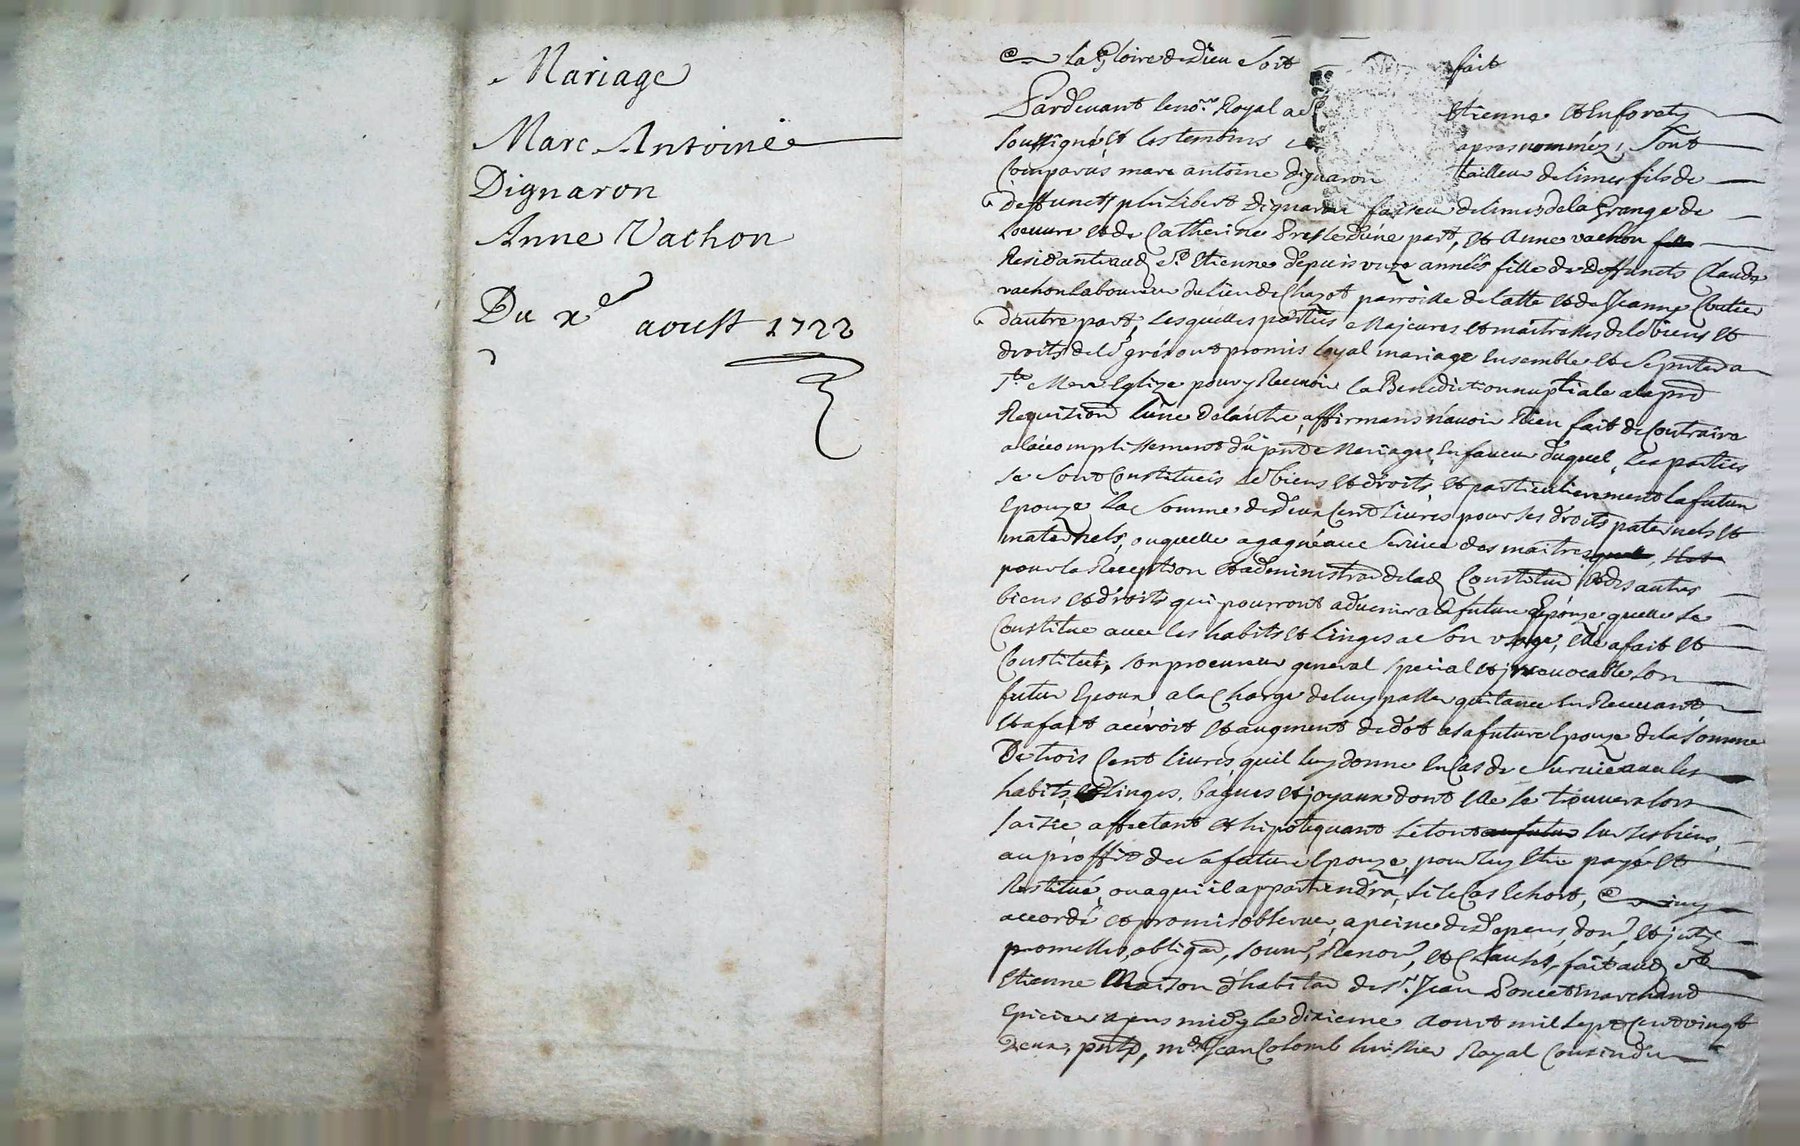 Mariage
Marc Antoine
Dignaron
Anne Vachon
Du xe aoust 1722
La Gloire de Dieu soit fait
Pardevant le nore Royal a St Etienne et en forets
soussigné, et les temoins apres nommés, sont
comparus marc antoine dignaron tailleur de limes fils de
deffunct philibert dignaron faiseur de limes de la Grange de
loeuvre et de Catherine d'une part, et Anne vachon
Residante aud St Etienne depuis onze années fille de deffuncts Claude
vachon laboureur du lieu de Chazot parroisse de latte et de Jeanne
d'autre part, lesquelles parties Majeures et maitresses de leurs biens et
droits de leur gré ont promis loyal mariage ensemble et se pnter a
Ste Mere Eglize pour y Recevoir la Benediction nuptiale a la pre
Requizion l'une de l'autre, affirmans n'avoir Rien fait de Contraire
a l'accomplissement du pnt Mariage, en faveur duquel, les parties
se sont Constitueés leurs biens et droits et particulierement la future
Epouze la somme de deux Cent livres pour ses droits paternels et
maternels, ou quelle a gagné au service des maitres
pour la Reception et administraon de lad Constituon et des autres
biens et droits qui pourront advenir a la future Epouze quelle se
Constitue avec les habits et linges a son usage, elle a fait et
Constitué, son procureur general special et irrevocable son
futur Epoux a la Charge de luy passer quitance en Recevant
et a fait accroit et augment de dot a sa future Epouze de la somme
De trois Cent livres quil luy donne en Cas de survie avec les
habits, et linges, bagues et joyaux dont elle se trouvera lors
saisie, affectant et hipotequant le tout sur ses biens,
au proffit de sa future Epouze, pour luy etre payé et
Restitué, ou a qui il appartiendra, si le Cas Echoit, ainsy
accordé et promis observer, a peine de depens, dom, et
promesses, obligaon, soumon, Renoon, et Clauses, fait aud St
Etienne Maison d'habitaon de sr Jean Poncet marchand
Epicier apres midy le dixieme Aoust mil sept Cent vingt
deux, pnts, me Jean Colomb huissier Royal Cousin du